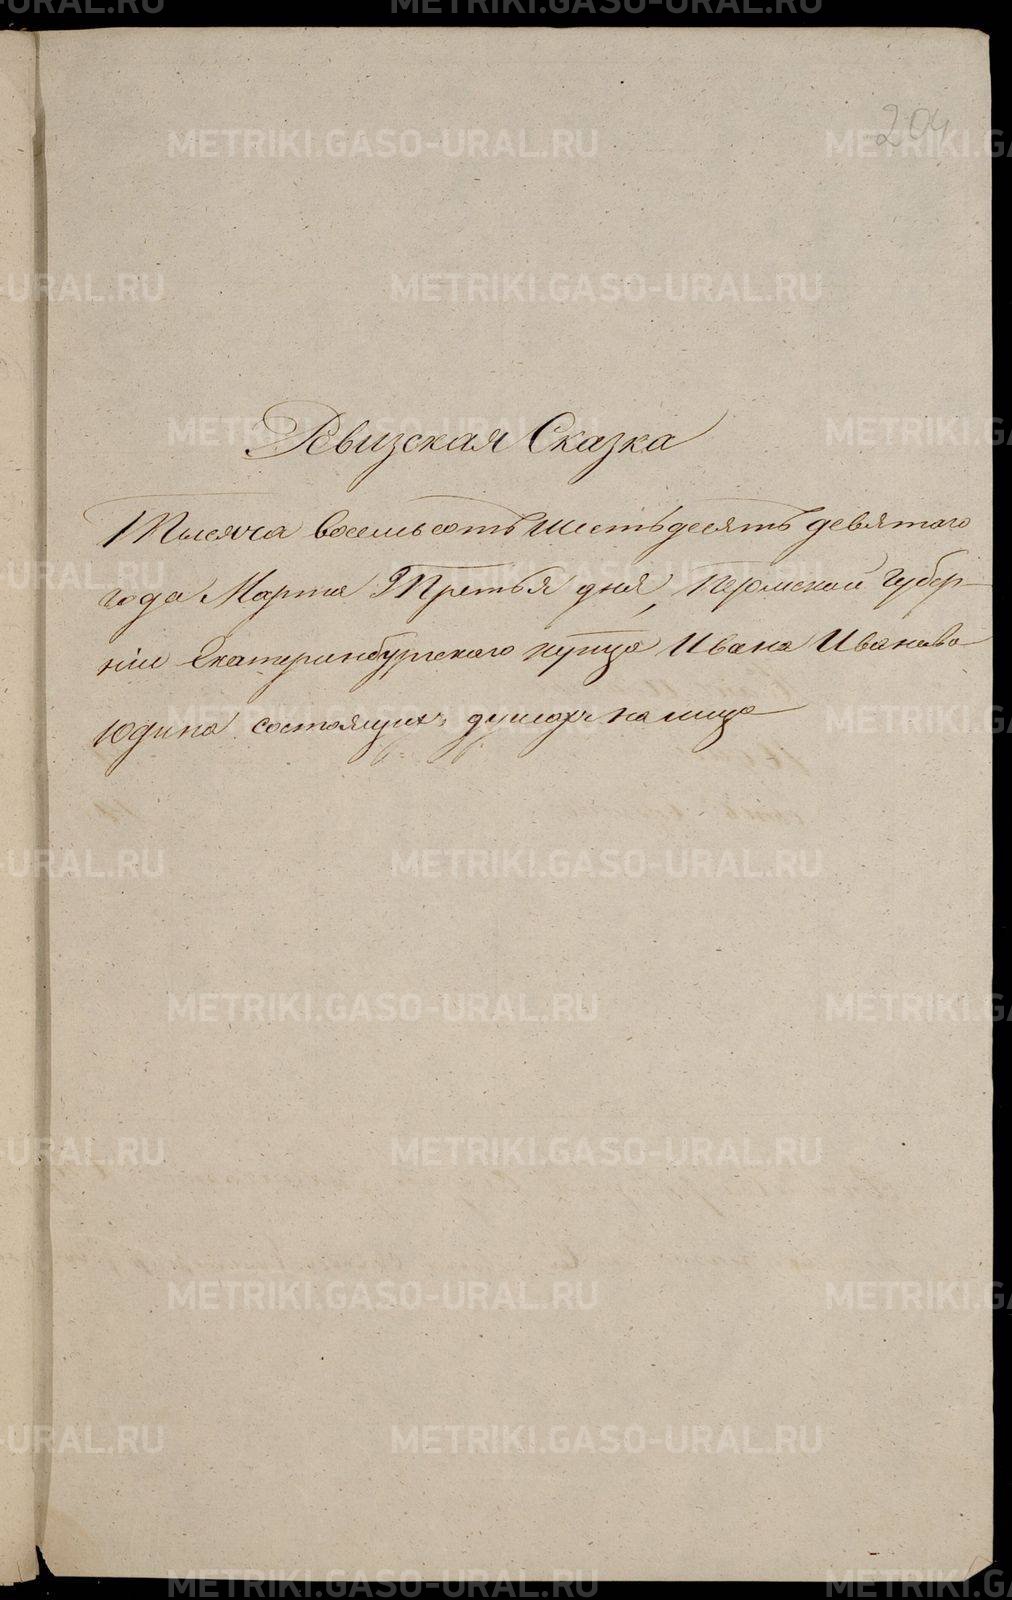 204
Ревизская Сказка
Тысяча восемьсотъ шестьдесятъ девятого
года Марта Третья дня, Пермской Губер-
нiи Екатеринбургского купца Ивана Иванова
Юдина состоящихъ душахъ на лице
METRIKI.GASO-URAL.RU